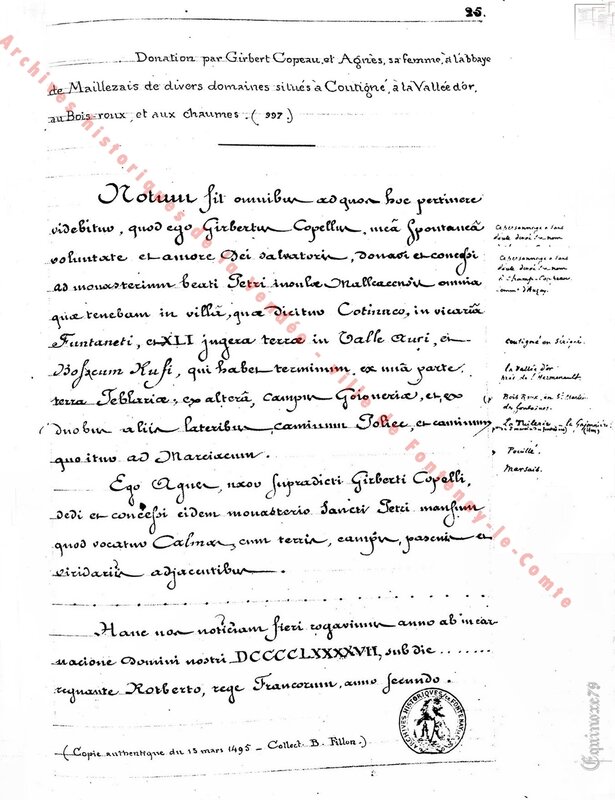 25.
Donation par Girbert Copeau, et Agnès, sa femme, à l'abbaye
de Maillezais de divers domaines situés à Coutigné, à la Vallée d'or,
au Bois-roux, et aux chaumes. (997.)
Notum sit omnibus ad quos hoc pertinere
videbitur, quod ego Girbertus Copellus, meâ spontaneâ
voluntate et amore Dei salvatoris, donavi et concessi
ad monasterium beati Petri insulæ Malleacensis omnia
quæ tenebam in villâ, quæ dicitur Cotinnco, in vicariâ
Funtaneti, et XLI jugera terræ in Valle Auri, et
Boscum Rufi, qui habet terminum, ex unâ parte
terra Teblariæ; ex alterâ, campus Goioneriæ, et ex
duobus aliis lateribus, caminum Poliec, et caminum
quo itur ad Marciacum.
Ego Agnes, uxor supradicti Girberti Copelli,
dedi et concessi eidem monasterio Sancti Petri mansum
quod vocatur Calmæ, cum terris, campis, pascuis et
viridariis adjacentibus.
Hanc nos noticiam fieri rogavimus anno ab incar
nacione Domini nostri DCCCCLXXXXVII, sub die ......
regnante Rotberto, rege Francorum, anno secundo.
(Copie authentique du 15 mars 1495 – Collect. B. Fillon.)
Ce personnage a sans
doute donné son nom
Ce personnage a sans
doute donné son nom
à Champ-Copeau
Coutigné en Sérigné.
La Vallée d'or
près de l'Hermenault.
Bois Roux, en St
de Fontaines.
La Tublerie
Pouillé.
Marsais.
Archives historiques de la Vendée - Ville de Fontenay-le-Comte
ARCHIVES HISTORIQUES
Equinoxe79